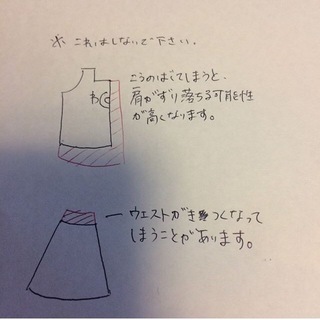 ※ これはしないで下さい.
こうのばしてしまうと、
肩がずり落ちる可能性
が高くなります。
わ
ウエストがきつくなって
しまうことがあります。